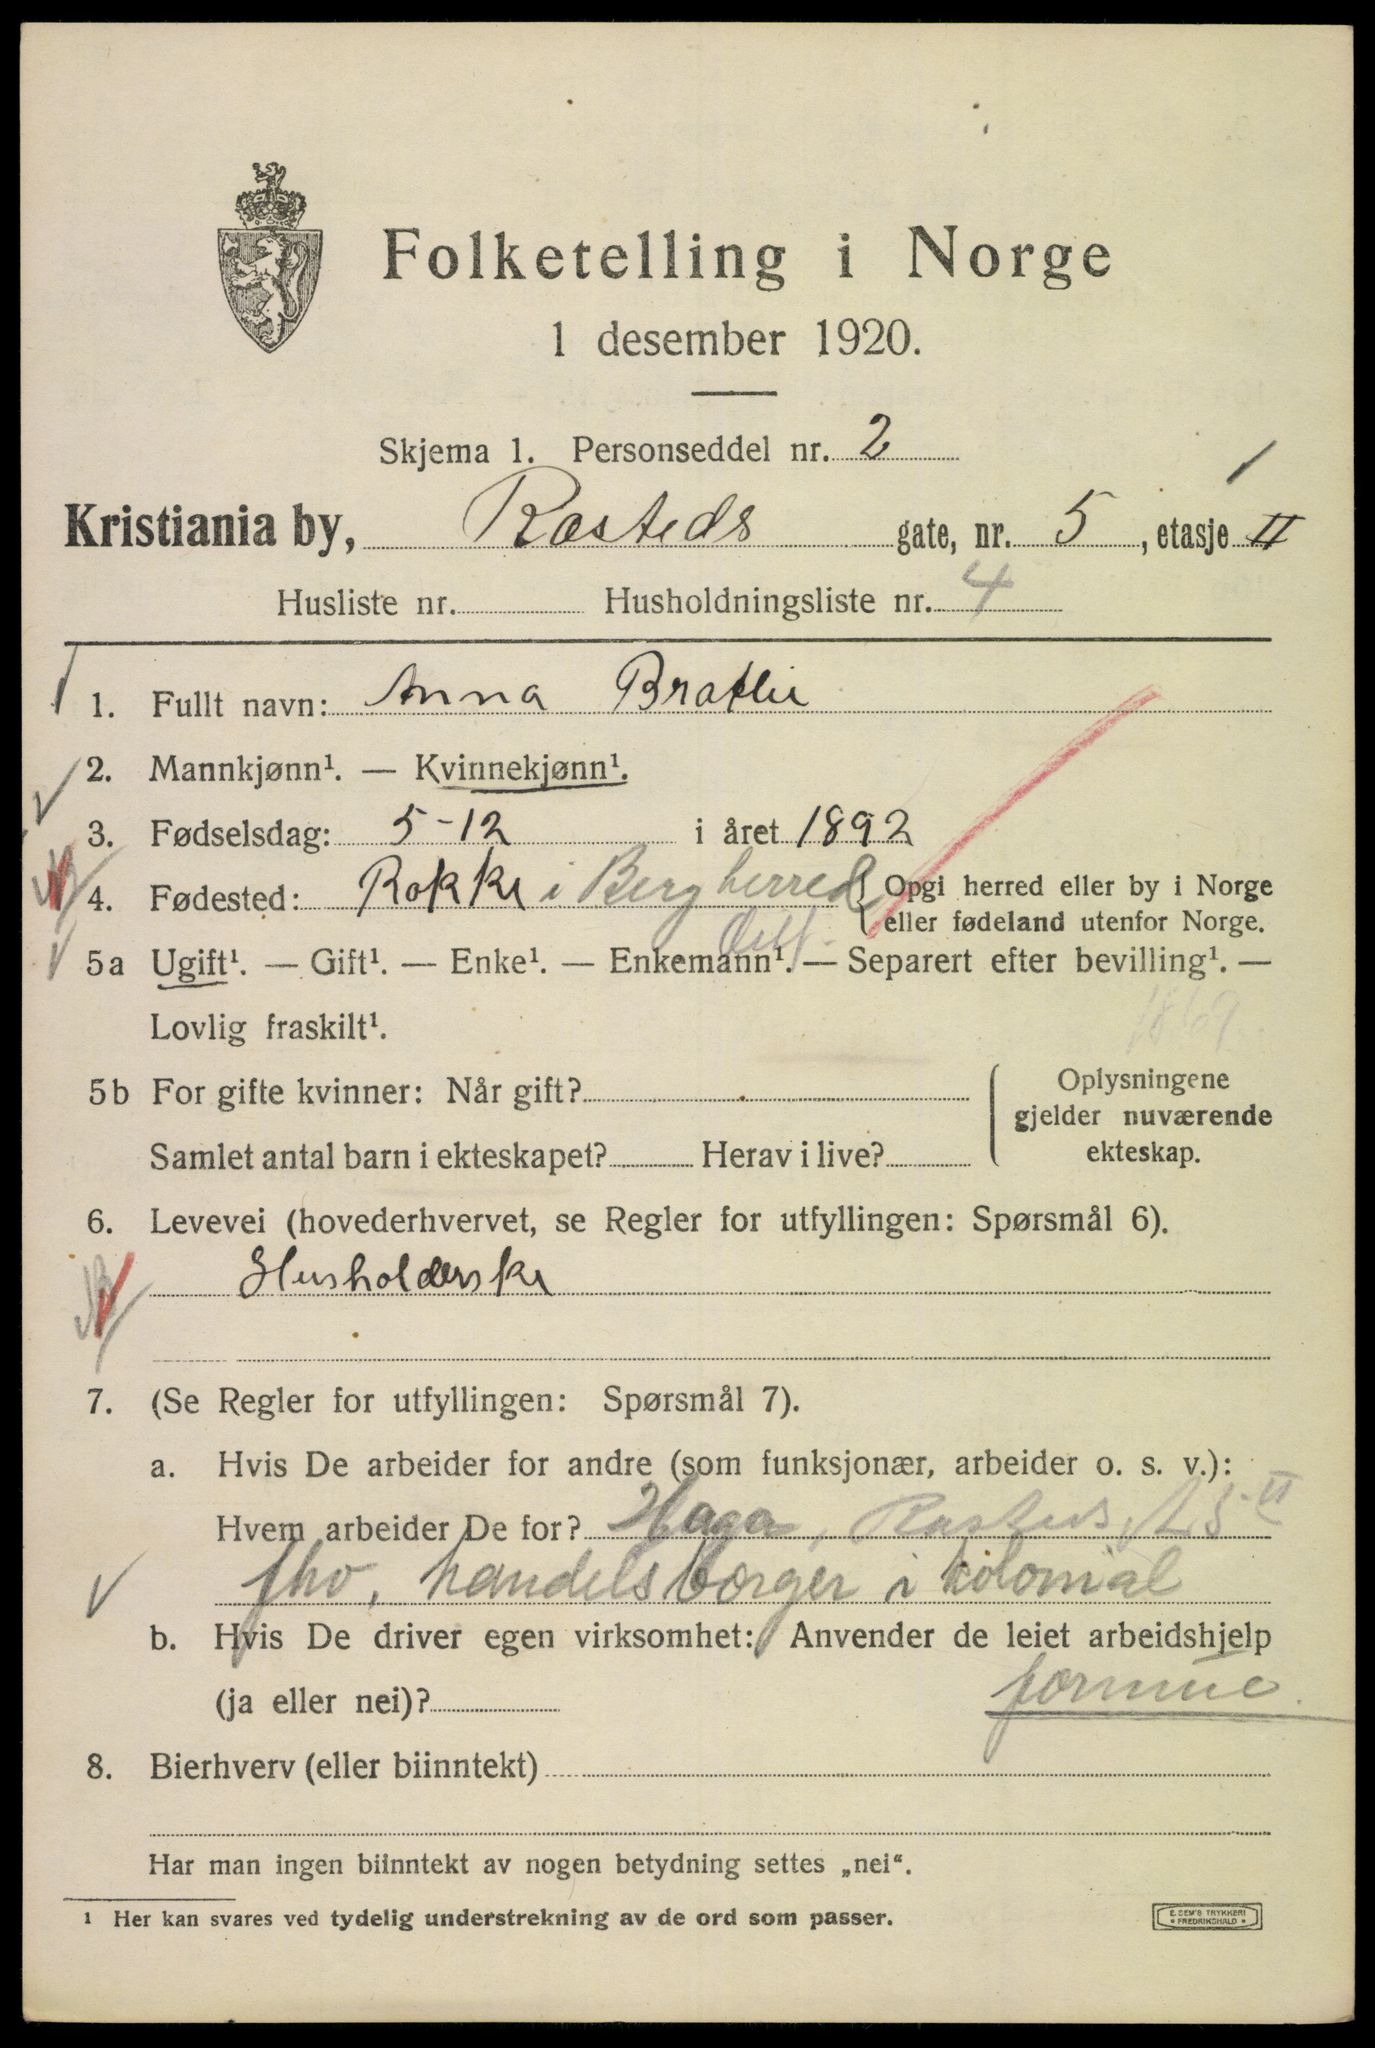 Folketelling i Norge
1 desember 1920.
Skjema 1. Personseddel nr. 2
Kristiania by, Rosteds gate, nr. 5, etasje II
Husliste nr. Husholdningsliste nr. 4
1. Fullt navn: Anna Bratlie
2. Mannkjønn¹. — Kvinnekjønn¹.
3. Fødselsdag: 5-12 i året 1892
4. Fødested: Rokke i Berg herred { Opgi herred eller by i Norge
eller fødeland utenfor Norge.
Østf.
5a Ugift¹. — Gift¹. — Enke¹. — Enkemann¹. — Separert efter bevilling¹. —
Lovlig fraskilt¹.
1869
5b For gifte kvinner: Når gift?
Samlet antal barn i ekteskapet? Herav i live?
Oplysningene
gjelder nuværende
ekteskap.
6. Levevei (hovederhvervet, se Regler for utfyllingen: Spørsmål 6).
Husholderske
7. (Se Regler for utfyllingen: Spørsmål 7).
a. Hvis De arbeider for andre (som funksjonær, arbeider o. s. v.):
Hvem arbeider De for? Haga, Rosteds 5 II
fhv, handelsborger i kolonial
b. Hvis De driver egen virksomhet: Anvender de leiet arbeidshjelp
(ja eller nei)?
formue.
8. Bierhverv (eller biinntekt)
Har man ingen biinntekt av nogen betydning settes „nei“.
¹ Her kan svares ved tydelig understrekning av de ord som passer.
E. SEM'S TRYKKERI
• FREDRIKSHALD •